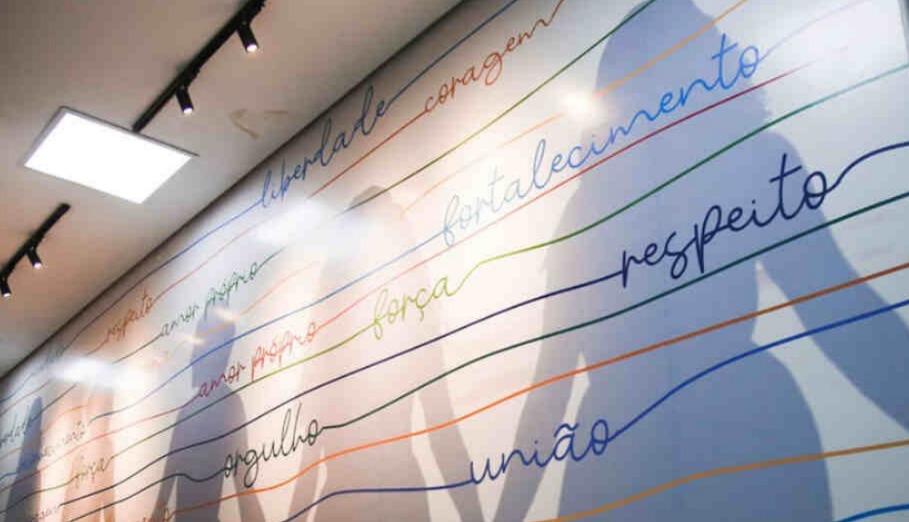 liberdade
coragem
fortalecimento
respeito
amor próprio
respeito
amor próprio
força
orgulho
união
força